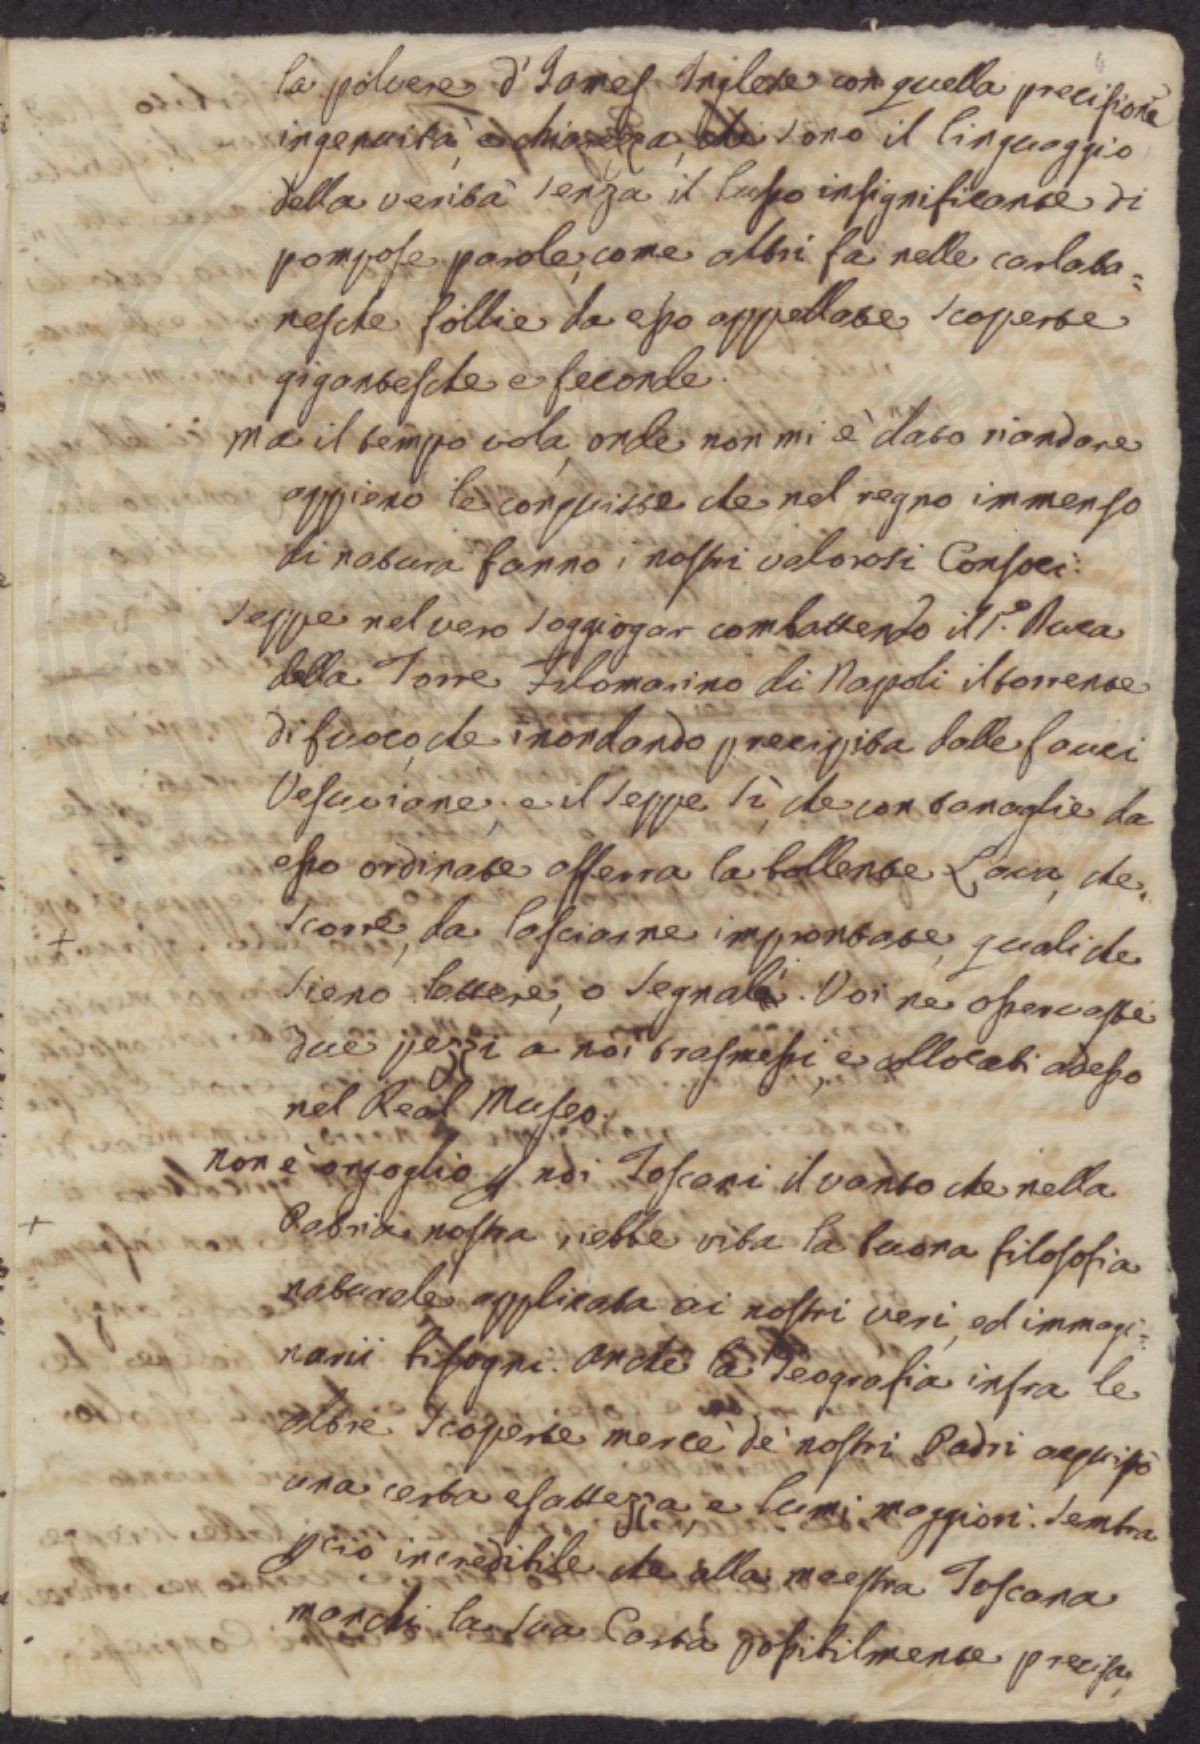 la polvere d'James Inglese con quella precisione
ingenuità, e chiarezza, che sono il linguaggio
della verità senza il lusso insignificante di
pompose parole, come altri fa nelle carlata=
nesche follie da esso appellate scoperte
gigantesche e feconde.
Ma il tempo vola, onde non mi è dato riandare
appieno le conquiste che nel regno immenso
di natura fanno i nostri valorosi Consoci:
Seppe nel vero soggiogar combattendo il S.r Duca
della Torre Filomarino di Napoli il torrente
di fuoco, che inondando precipita dalle fauci
Vesuviane; e il seppe sì, che con tanaglie da
esso ordinate afferra la bollente Lava, che
scorre, da lasciarne improntate, quali che
sieno lettere, o segnali. Voi ne osservaste
due pezzi a noi trasmessi, e collocati adesso
nel Real Museo.
Non è orgoglio p noi Toscani il vanto che nella
Patria nostra riebbe vita la buona filosofia
naturale, applicata ai nostri veri, ed immagi=
narii bisogni. Anche la Geografia infra le
altre scoperte mercè de' nostri Padri acquistò
una certa esattezza, e lumi maggiori. Sembra
pciò incredibile che alla maestra Toscana
manchi la sua Carta possibilmente precisa,